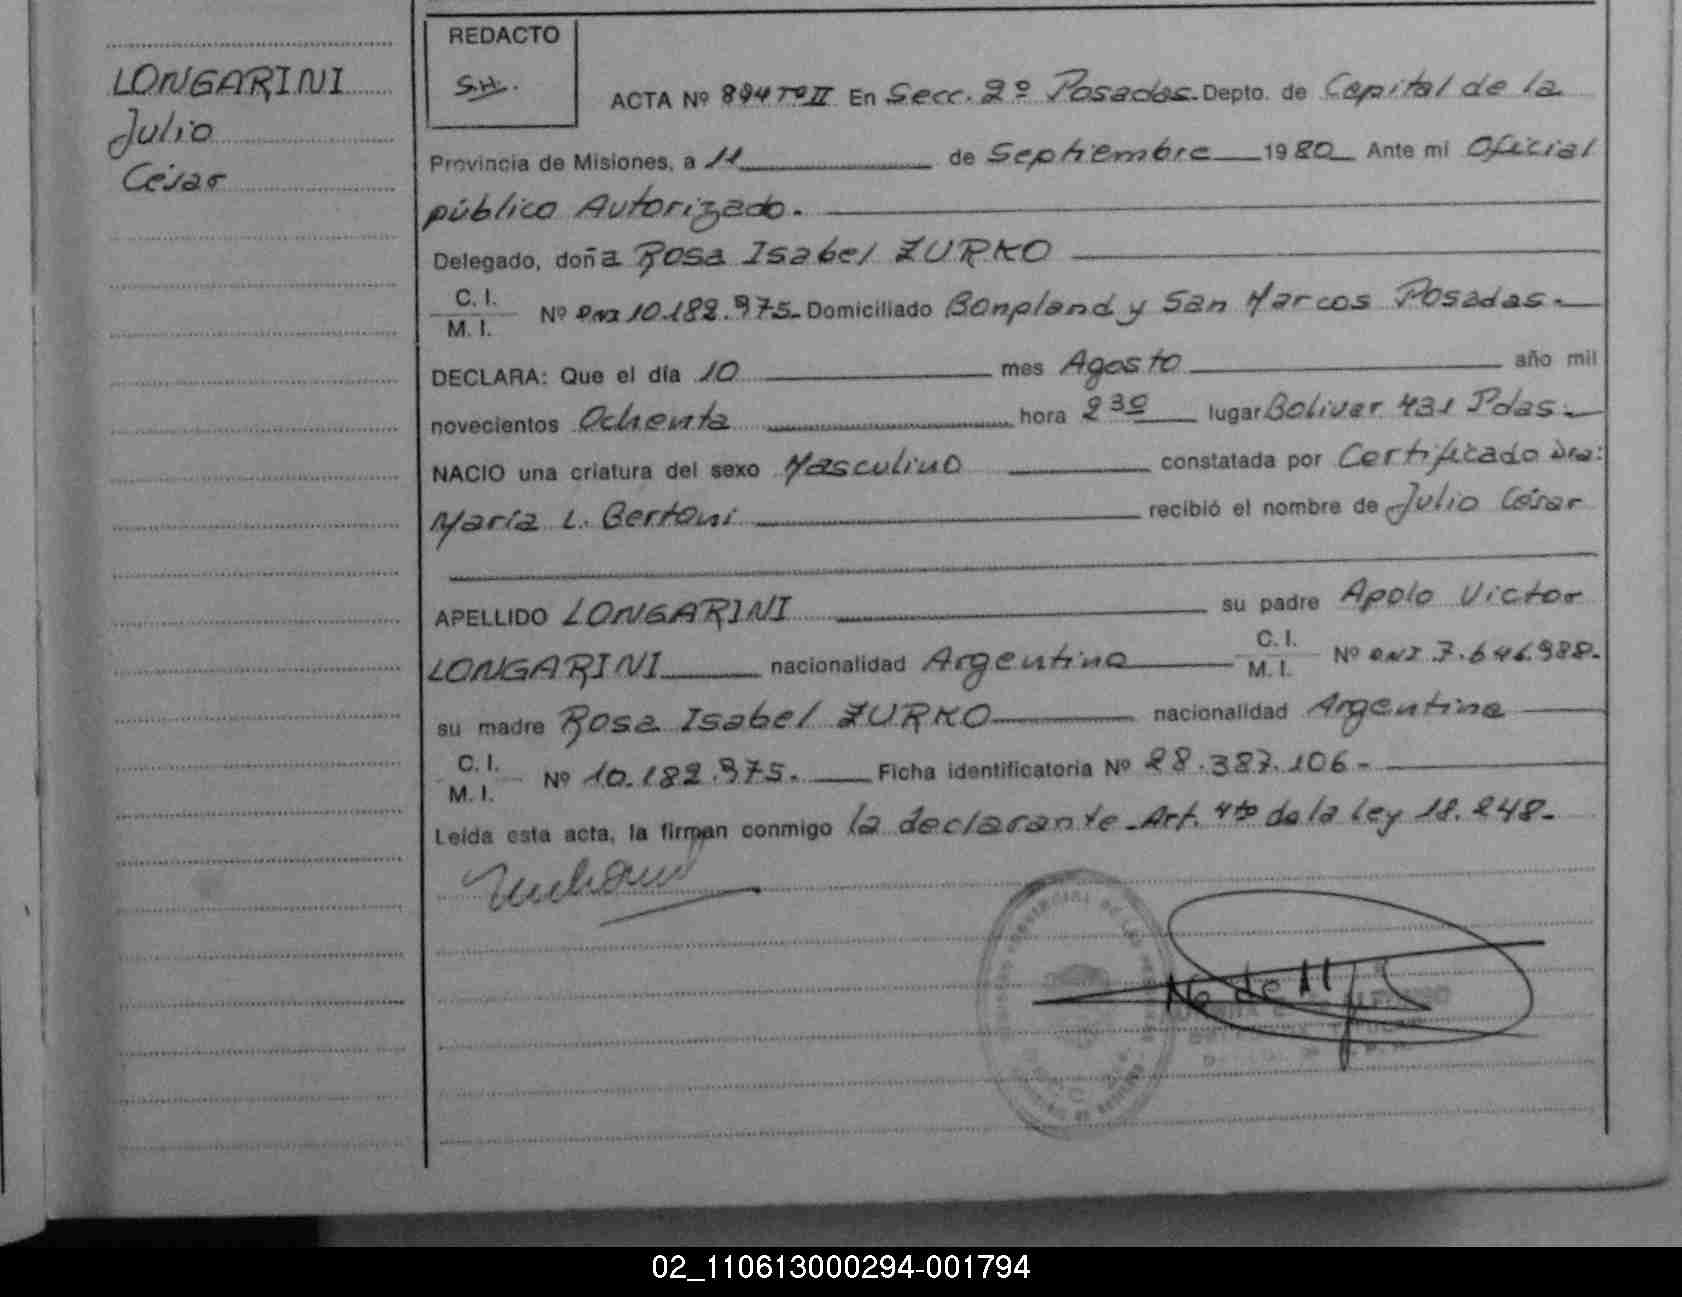 LONGARINI
Julio
César
REDACTO
S.H.
ACTA Nº 894 Tº II En Secc. 2º Posadas. Depto. de Capital de la
Provincia de Misiones, a 11 de Septiembre 1980 Ante mi Oficial
público Autorizado.
Delegado, doña Rosa Isabel ZURKO
C. I.
M. I. Nº DNI 10.182.975. Domiciliado Bonpland y San Marcos Posadas.
DECLARA: Que el día 10 mes Agosto año mil
novecientos Ochenta hora 2 30 lugar Bolivar 431 Pdas.
NACIO una criatura del sexo Masculino constatada por Certificado Dra:
María L. Bertoni recibió el nombre de Julio César
APELLIDO LONGARINI su padre Apolo Victor
LONGARINI nacionalidad Argentina C. I.
M. I. Nº DNI 7.646.988.
su madre Rosa Isabel ZURKO nacionalidad Argentina
C. I.
M. I. Nº 10.182.975. Ficha identificatoria Nº 28.387.106-
Leída esta acta, la firman conmigo la declarante. Art. 4to de la Ley 18.248.
02_110613000294-001794